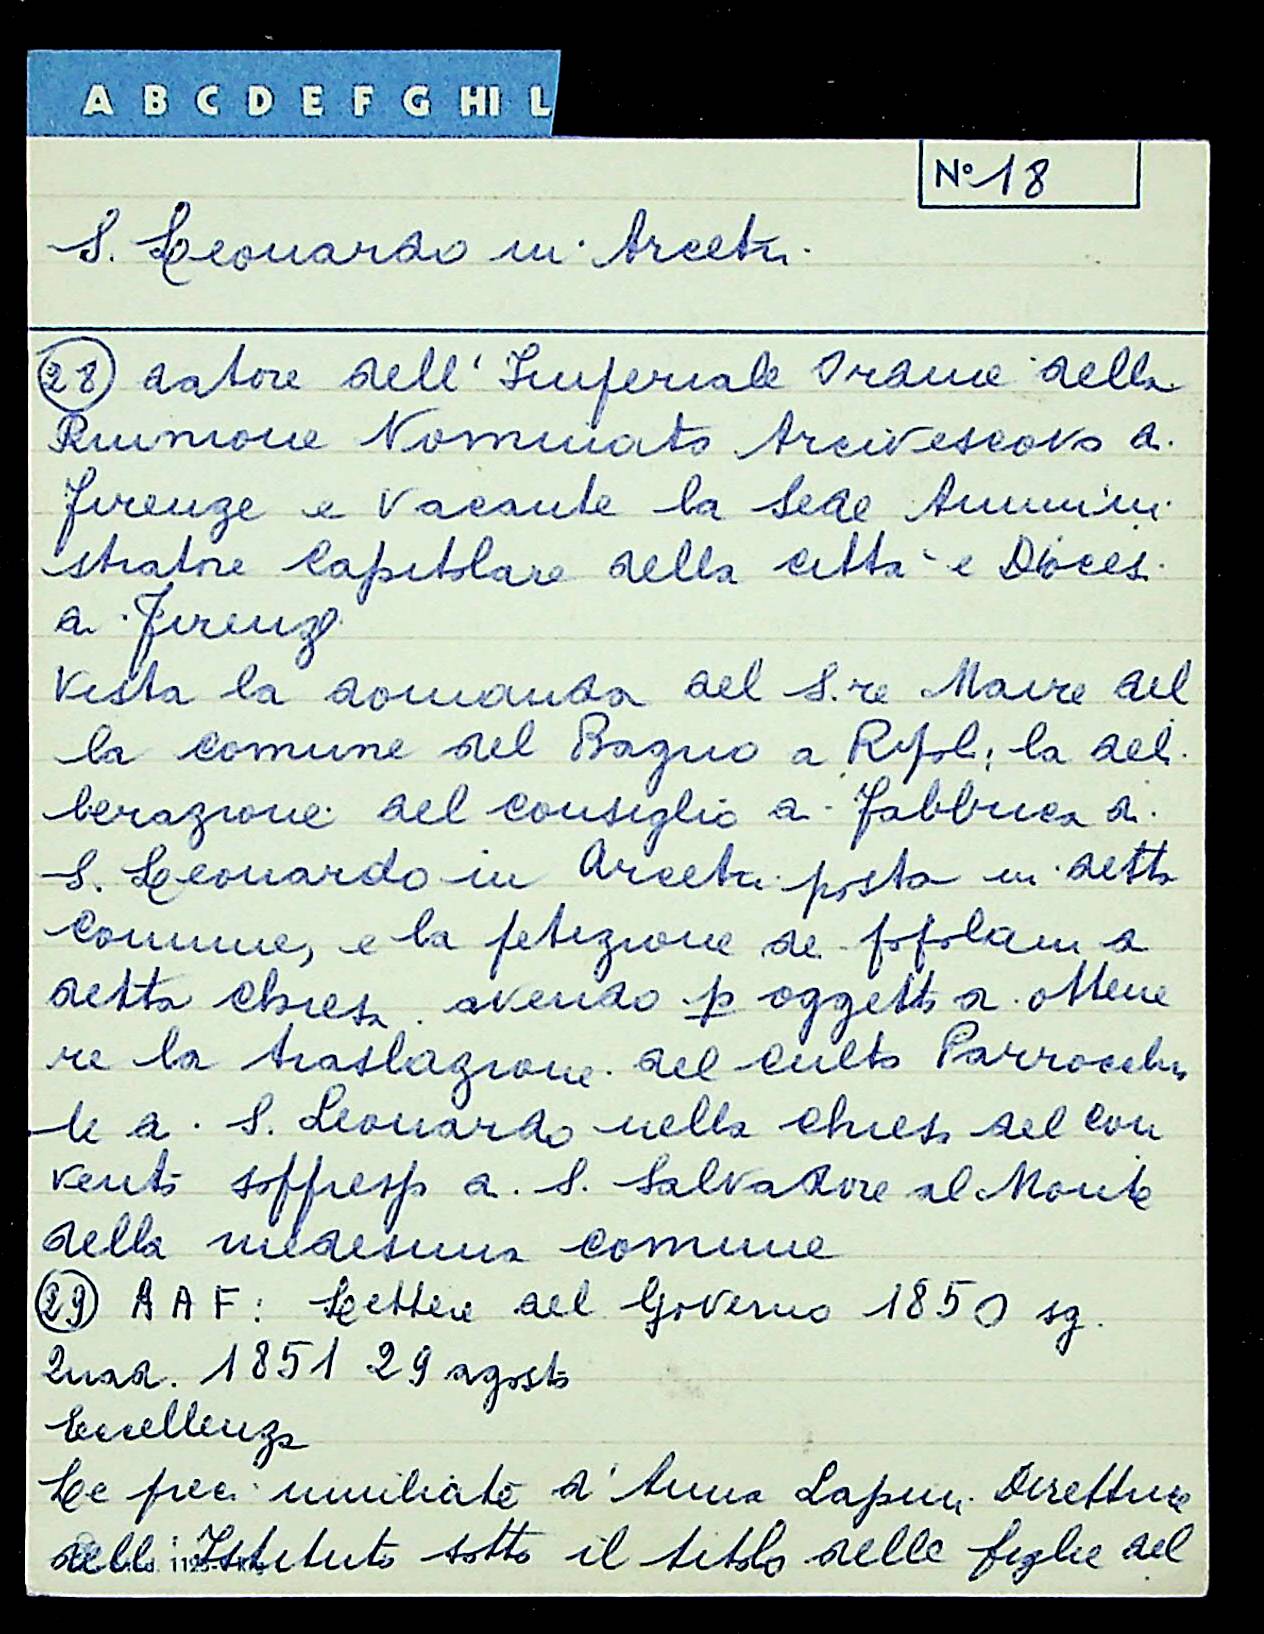 A B C D E F G HI L
N° 18
S. Leonardo in Arcetri
28 datore dell'Imperiale Ordine della
Riunione Nominato Arcivescovo di
Firenze e Vacante la Sede Ammini
stratore Capitolare della città e Diocesi
di Firenze
Vista la domanda del S.re Maire del
la comune del Bagno a Ripoli; la deli
berazione del consiglio di Fabbrica di
S. Leonardo in Arcetri posta in detta
Comune, e la petizione de popolani di
detta chiesa avendo p oggetto di ottene
re la traslazione del culto Parrocchia
le di S. Leonardo nella chiesa del con
vento soppresso di S. Salvadore al Monte
della medesima comune
29 A A F: Lettere del Governo 1850 sg.
Quad. 1851 29 agosto
Eccellenza
Le preci umiliate d'Anna Lapini Direttrice
dell'Istituto sotto il titolo delle figlie del